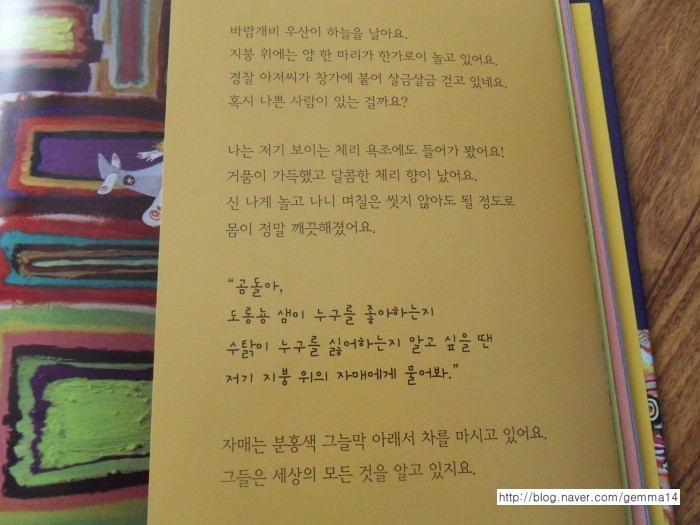 바람개비 우산이 하늘을 날아요.
지붕 위에는 양 한 마리가 한가로이 놀고 있어요.
경찰 아저씨가 창가에 붙어 살금살금 걷고 있네요.
혹시 나쁜 사람이 있는 걸까요?
나는 저기 보이는 체리 욕조에도 들어가 봤어요!
거품이 가득했고 달콤한 체리 향이 났어요.
신 나게 놀고 나니 며칠은 씻지 않아도 될 정도로
몸이 정말 깨끗해졌어요.
“곰돌아,
도롱뇽 샘이 누구를 좋아하는지
수탉이 누구를 싫어하는지 알고 싶을 땐
저기 지붕 위의 자매에게 물어봐.”
자매는 분홍색 그늘막 아래서 차를 마시고 있어요.
그들은 세상의 모든 것을 알고 있지요.
http://blog.naver.com/gemma14